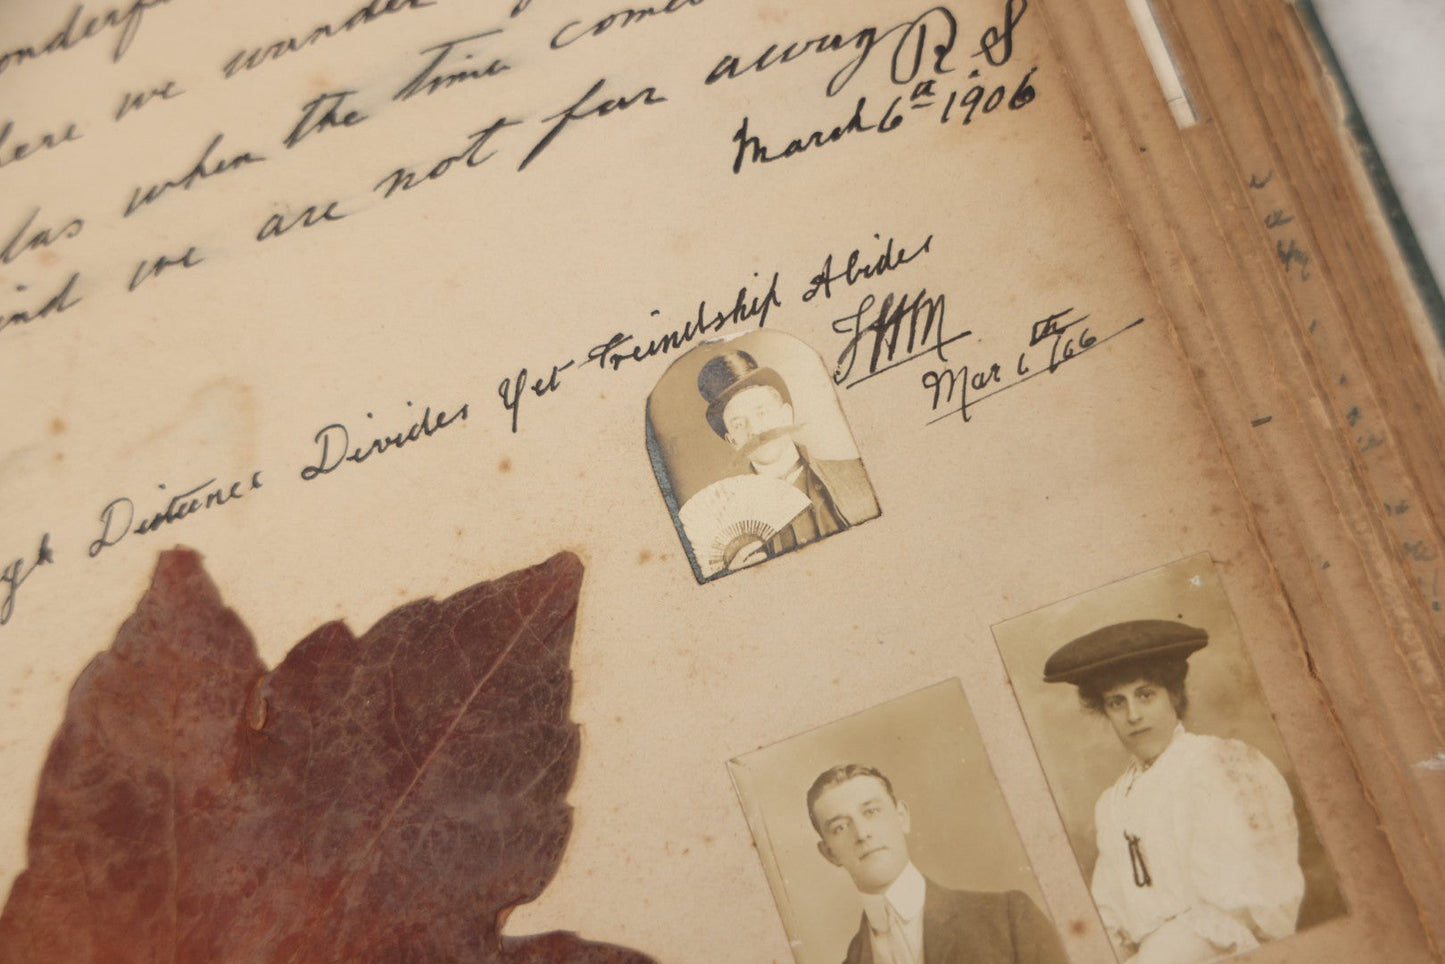 we wander
when the time comes
we are not far away R.S.
March 6th 1906
Distance Divides Yet Freindship Abides
FHM
Mar 6th/06